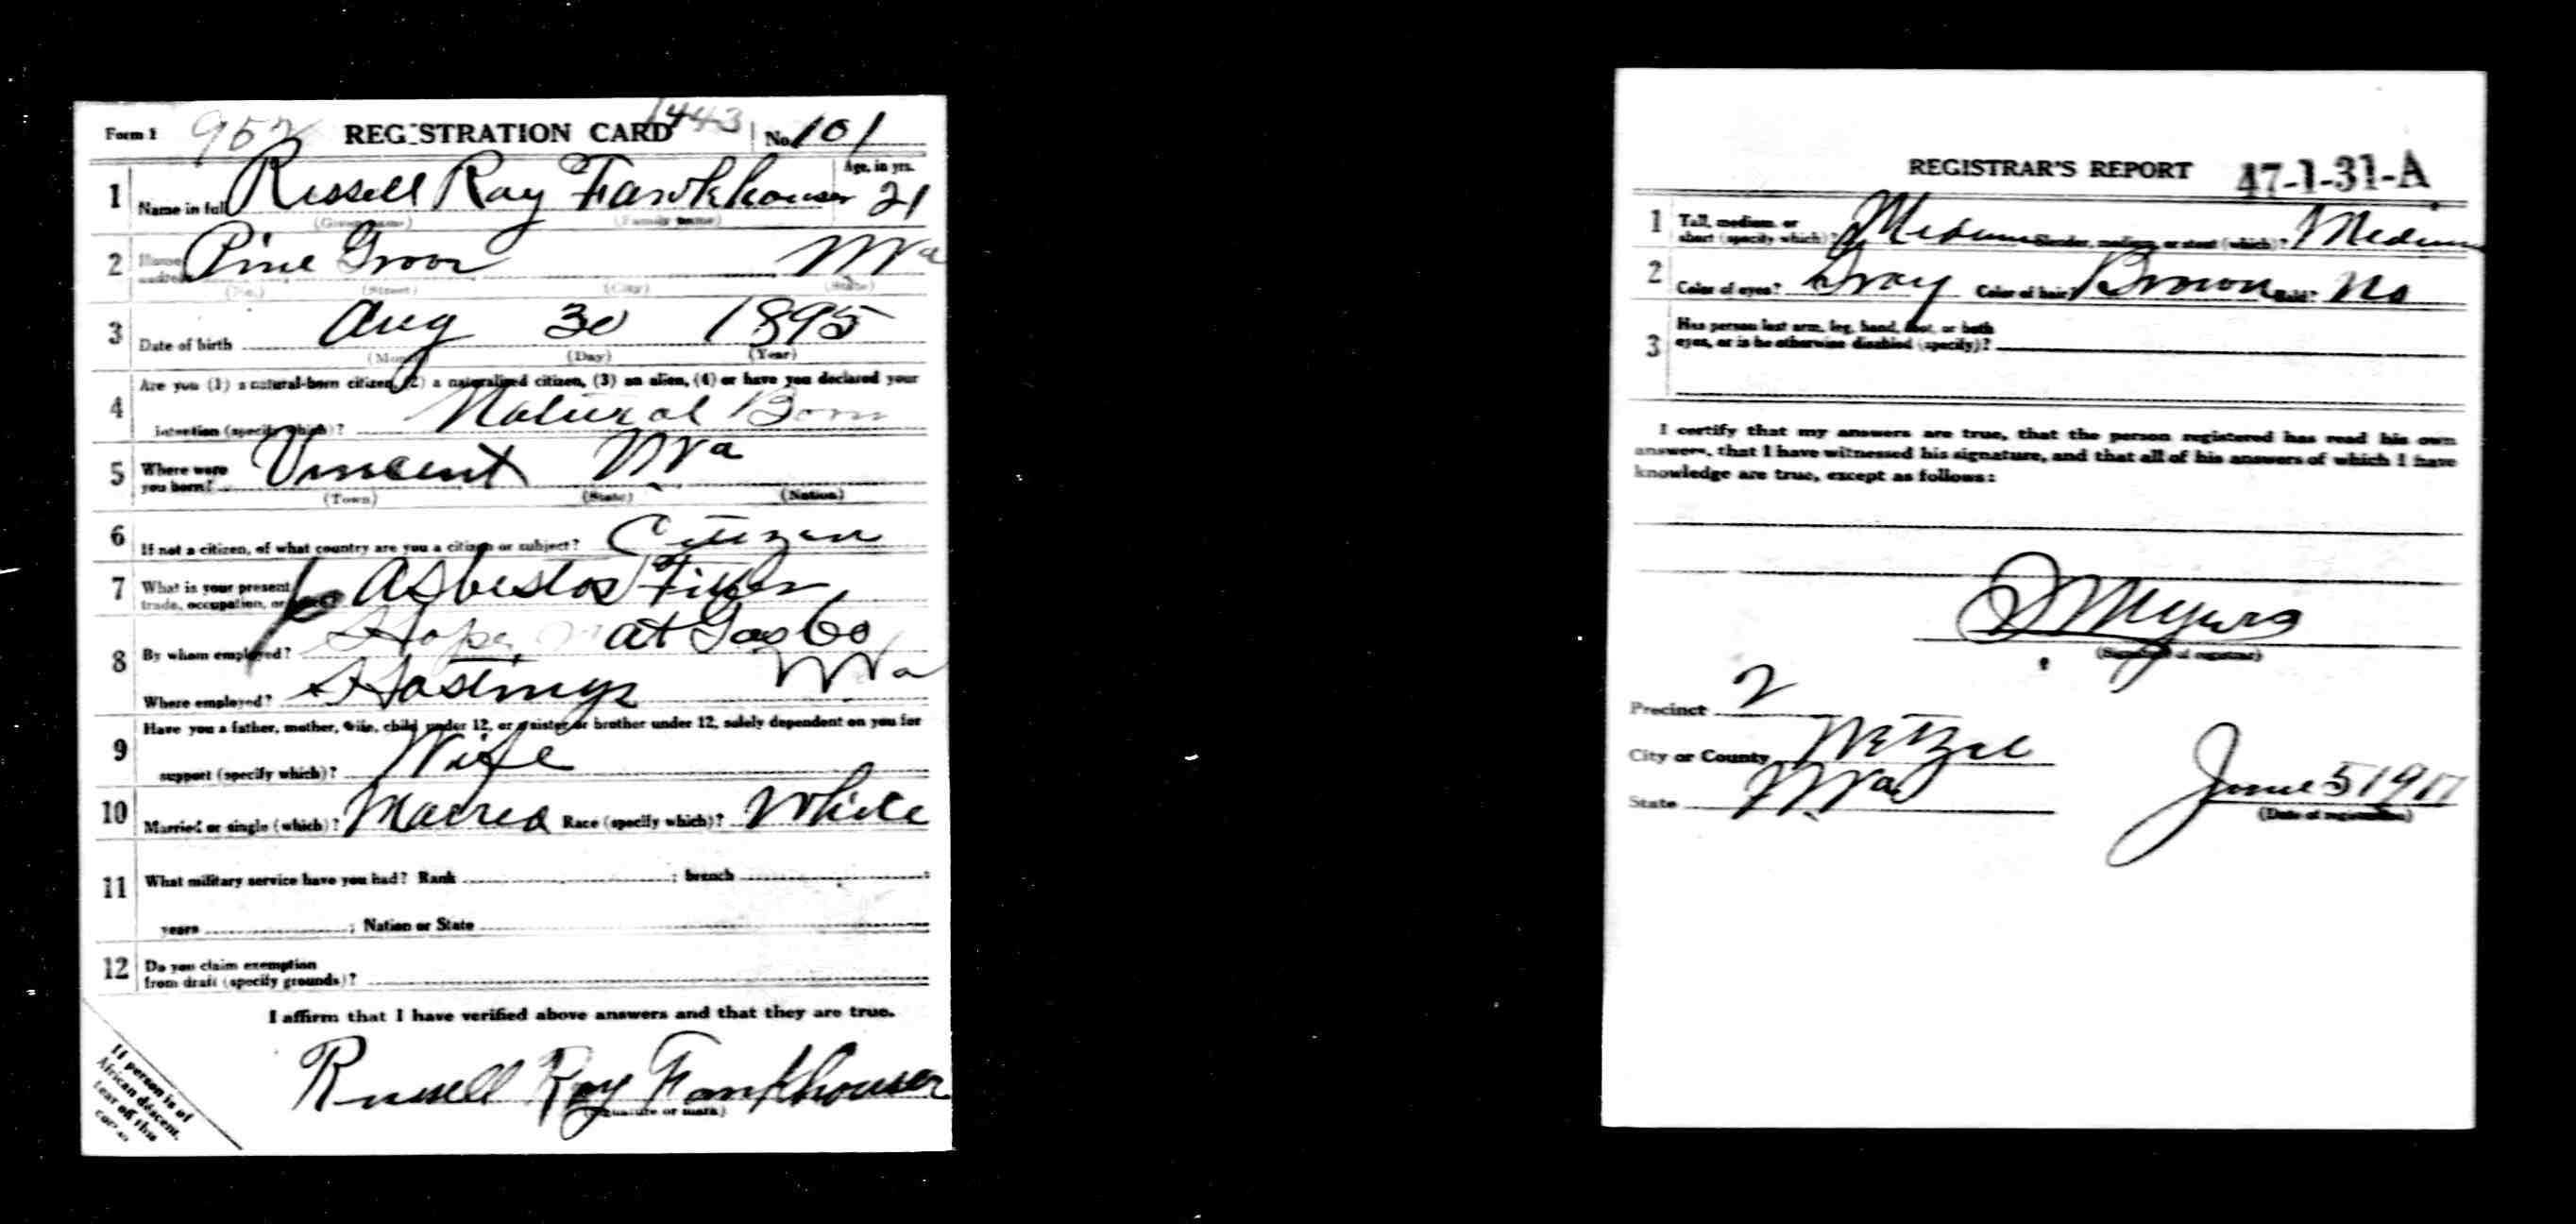 Form 1 952 REGISTRATION CARD 1443 No. 101
1 Name in full Russell Ray Fankhouser Age, in yrs. 21
(Given name) (Family name)
2 Home address Pine Grove W Va
(No.) (Street) (City) (State)
3 Date of birth Aug 30 1895
(Month) (Day) (Year)
4 Are you (1) a natural-born citizen, (2) a naturalized citizen, (3) an alien, (4) or have you declared your
intention (specify which)? Natural Born
5 Where were you born? Vincent W. Va
(Town) (State) (Nation)
6 If not a citizen, of what country are you a citizen or subject? Citizen
7 What is your present
trade, occupation, or office? Asbestos Fitter
8 By whom employed? Hope Nat Gas Co
Where employed? Hastings W Va
9 Have you a father, mother, wife, child under 12, or a sister or brother under 12, solely dependent on you for
support (specify which)? Wife
10 Married or single (which)? Married Race (specify which)? White
11 What military service have you had? Rank ; branch ;
years ; Nation or State
12 Do you claim exemption
from draft (specify grounds)?
I affirm that I have verified above answers and that they are true.
Russell Ray Fankhouser
(Signature or mark)
If person is of
African descent,
tear off this
corner
REGISTRAR'S REPORT 47-1-31-A
1 Tall, medium, or
short (specify which)? Medium Slender, medium, or stout (which)? Medium
2 Color of eyes? Gray Color of hair? Brown Bald? No
3 Has person lost arm, leg, hand, foot, or both
eyes, or is he otherwise disabled (specify)?
I certify that my answers are true, that the person registered has read his own
answers, that I have witnessed his signature, and that all of his answers of which I have
knowledge are true, except as follows:
Myers
(Signature of registrar)
Precinct 2
City or County Wetzel
State W. Va June 5 1917
(Date of registration)